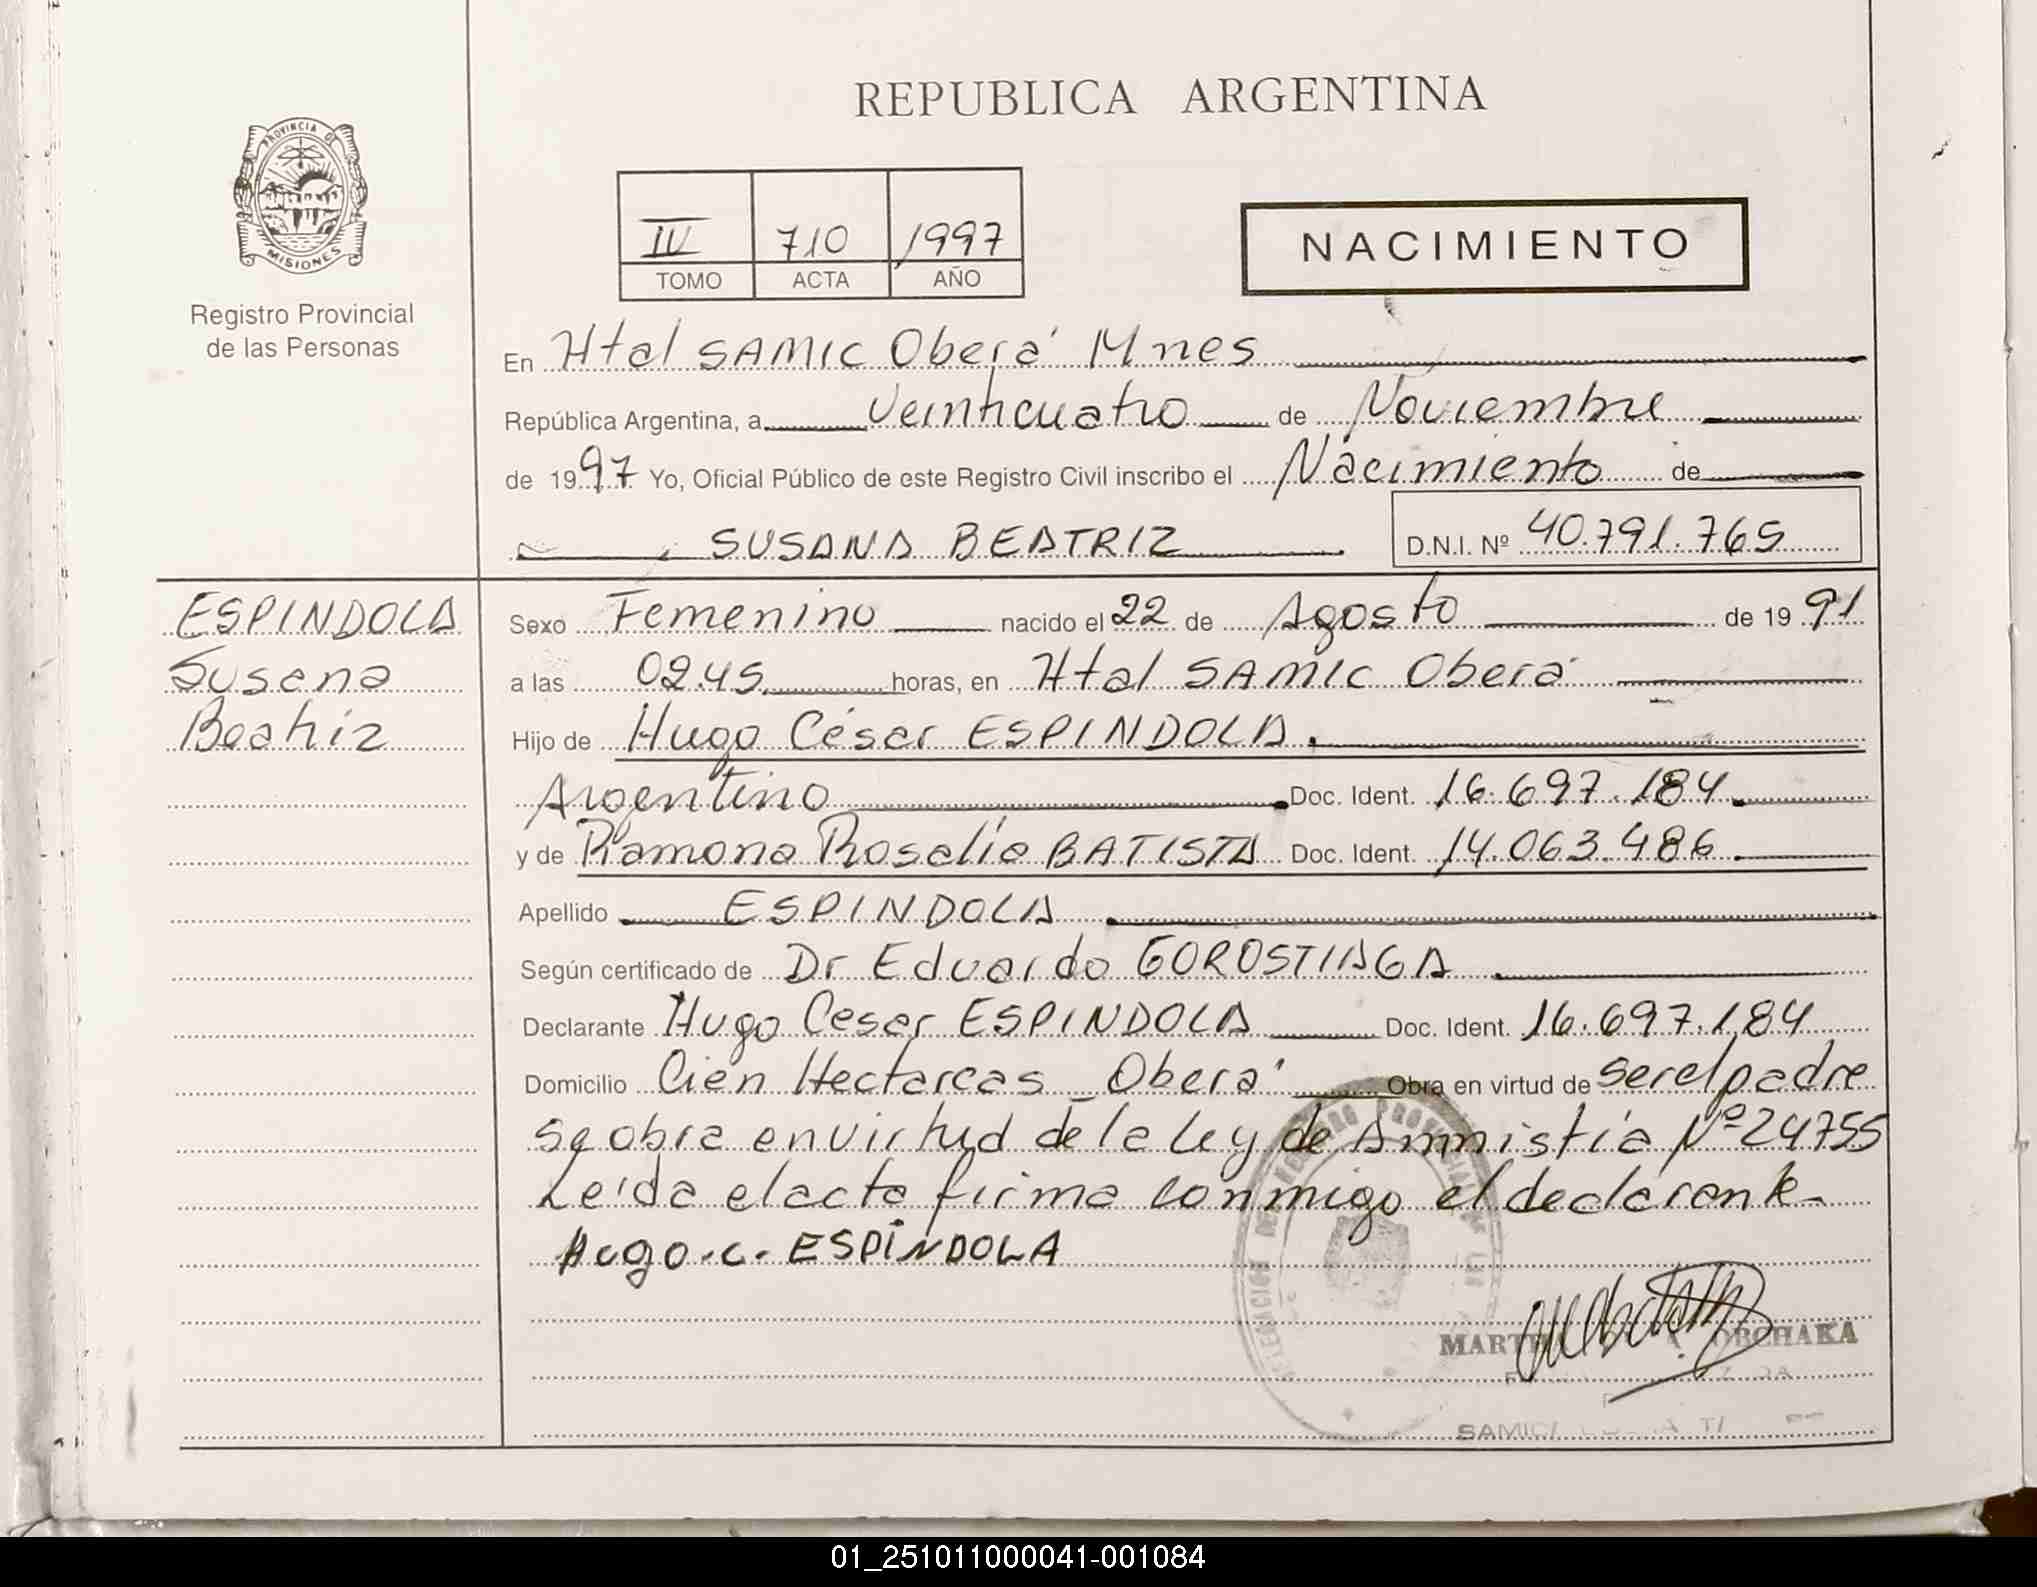 REPUBLICA ARGENTINA
PROVINCIA DE
MISIONES
Registro Provincial
de las Personas
IV 710 1997
TOMO ACTA AÑO
NACIMIENTO
En Htal SAMIC Oberá Mnes
República Argentina, a Veinticuatro de Noviembre
de 1997 Yo, Oficial Público de este Registro Civil inscribo el Nacimiento de
SUSANA BEATRIZ D.N.I. Nº 40.791.765
ESPINDOLA
Susana
Beatriz
Sexo Femenino nacido el 22 de Agosto de 1991
a las 02.45 horas, en Htal SAMIC Oberá
Hijo de Hugo César ESPINDOLA.
Argentino Doc. Ident. 16.697.184
y de Ramona Rosalia BATISTA Doc. Ident. 14.063.486
Apellido ESPINDOLA
Según certificado de Dr Eduardo GOROSTIAGA
Declarante Hugo Cesar ESPINDOLA Doc. Ident. 16.697.184
Domicilio Cien Hectareas Oberá Obra en virtud de ser el padre
se obra en virtud de la Ley de Amnistía Nº 24755
Leida el acta firma conmigo el declarante
Hugo.C. ESPÍNDOLA
MARTHA ORCHAKA
SAMIC
01_251011000041-001084